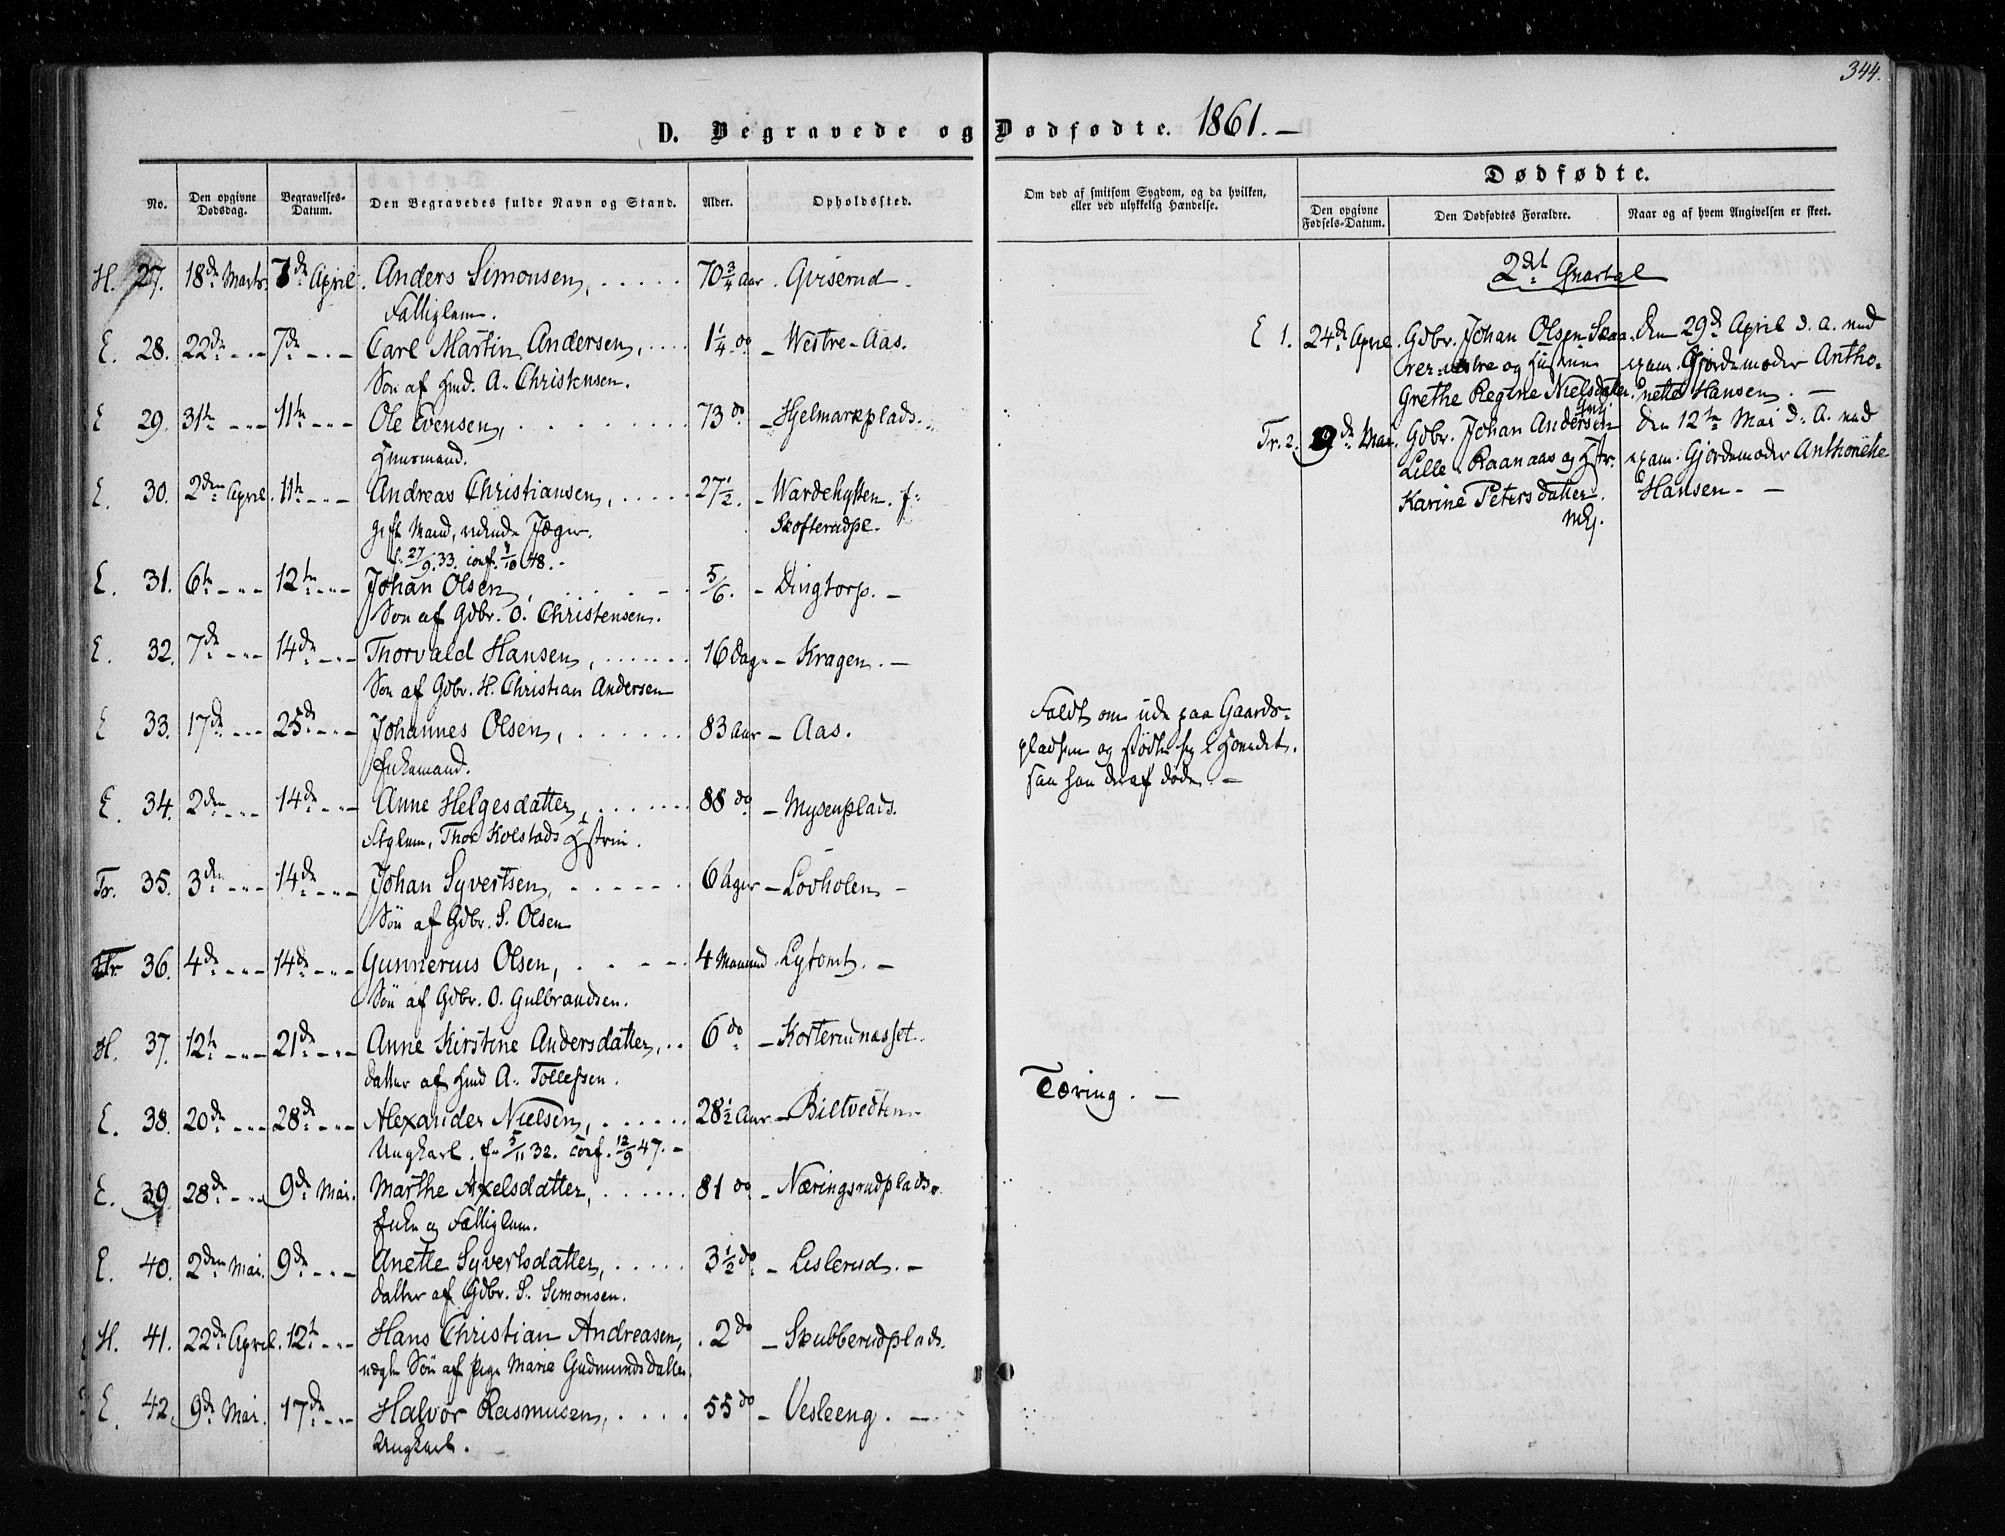 344.
D. Begravede og Dødfødte. 1861. —
No.
Den opgivne Dødsdag.
Begravelses-Datum.
Den Begravedes fulde Navn og Stand.
Alder.
Opholdssted.
Om død af smitsom Sygdom, og da hvilken, eller ved ulykkelig Hændelse.
Dødfødte.
Den opgivne Fødsels-Datum.
Den Dødfødtes Forældre.
Naar og af hvem Angivelsen er skeet.
H. 27. 18de Marts. 7de April. Anders Simonsen, 70 3/4 Aar. Gviserud.
Fattiglem.
E. 28. 22de - " - 7de - " - Carl Martin Andersen, 1 1/4 do - Westre-Aas.
Søn af Hmd. A. Christensen.
E 29. 31te - " - 11te - " - Ole Evensen, 73 do - Hjelmarkplads.
Huusmand.
E. 30. 2den April. 11te - " - Andreas Christiansen, 27 1/2. - Wardehytten. f:
gift Mand, Jæger. Skofterudpl.
f. 27/9. 33. conf. 1/10 48. -
E. 31. 6te - " - 12te - " - Johan Olsen, 5/6. - Dingtorp. -
Søn af Gdbr. O. Christensen.
E. 32. 7de - " - 14de - " - Thorvald Hansen, 16 Dage - Kragen. -
Søn af Gdbr. H. Christian Andersen
E 33. 17de - " - 25de - " - Johannes Olsen, 83 Aar - Aas.
Enkemand.
E. 34. 2den - " - 14de - " - Anne Helgesdatter, 88 do - Mysenplads.
Ftglem, Thor Kolstads
Tr. 35. 3den - " - 14de - " - Johan Syvertsen, 6 Uger - Lövholen -
Søn af Gdbr. S. Olsen
Tr 36. 4de - " - 14de - " - Gunnerius Olsen, 4 Maaned. Lytomt. -
Søn af Gdbr. O. Gulbrandsen.
H. 37. 12te - " - 21de - " - Anne Kirstine Andersdatter, 6 do - Korterudnæsset.
datter af Hmd A. Tollefsen.
E. 38. 20de - " - 28de - " - Alexander Nielsen, 28 1/2 Aar - Biltvedten -
Ungkarl. f. 5/11 32. conf. 12/9 47. -
E. 39. 28de - " - 9de Mai. Marthe Axelsdatter, 81 do - Næringsrudplads.
Enke og Fattiglem.
E. 40. 2den Mai. 9de - " - Anette Syvertsdatter, 3 1/2 do - Lislerud. -
datter af Gdbr. S. Simonsen.
H. 41. 22de April. 12te - " - Hans Christian Andreasen, 2 do - Skubberudplads.
uægte Søn af Pige Marie Gudmundsdatter.
E. 42. 9de Mai. 17de - " - Halvor Rasmusen, 55 do - Vesleeng. -
Ungkarl.
Faldt om ude paa Gaards-
pladsen og stødte sig i Hovedet.
saa han deraf døde. -
Tæring. -
2det Qvartal
E 1. 24de April. Gdbr. Johan Olsen Skaa-
rer-vestre og Hustru
Grethe Regine Nielsdatter.
den 29de April d. A. ved
exam. Gjordemoder Antho-
nette Hansen. -
Tr. 2. 9de Mai. Gdbr. Johan Andersen
Lille-Raanaas og Hstr.
Karine Petersdatter.
den 12te Mai d. A. ved
exam. Gjordemoder Anthonette
Hansen. -